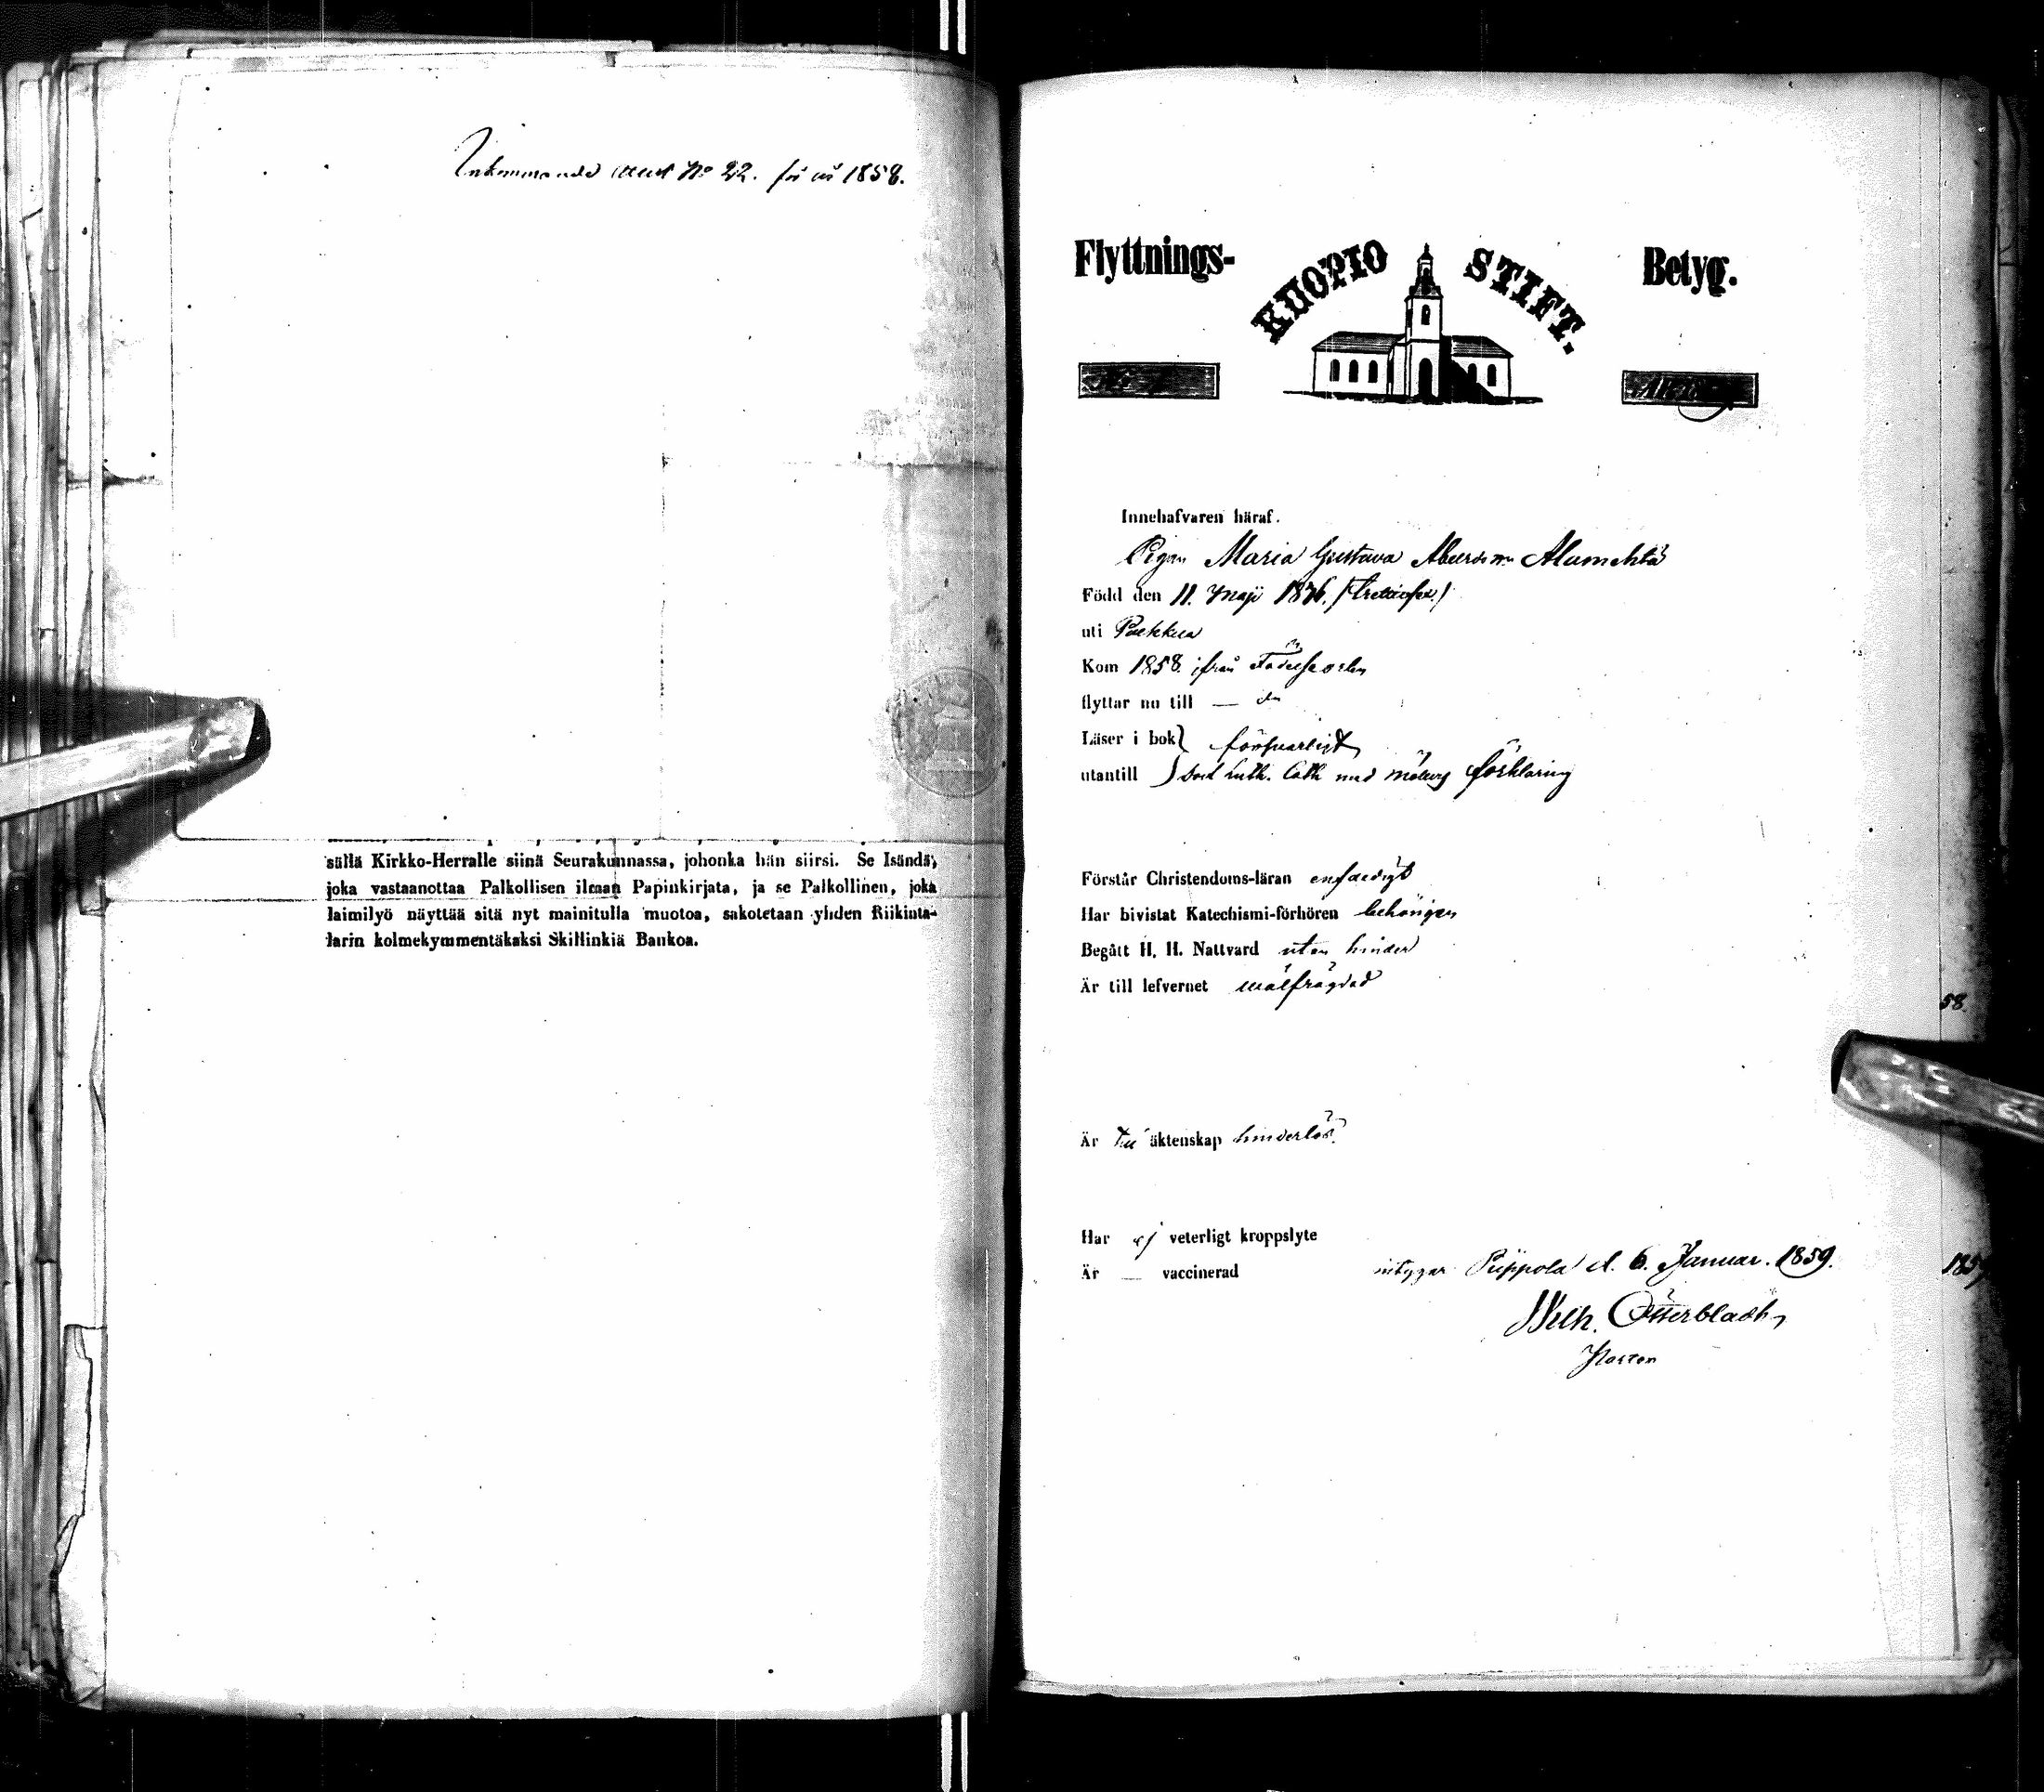 Inkommande attest No 22. för år 1858.
sällä Kirkko-Herralle siinä Seurakunnassa, johonka hän siirsi. Se Isändä,
joka vastaanottaa Palkollisen ilman Papinkirjata, ja se Palkollinen, joka
laimilyö näyttää sitä nyt mainitulla muotoa, sakotetaan yhden Riikinta-
larin kolmekymmentäkaksi Skillinkiä Bankoa.
Flyttnings- KUOPIO STIFT. Betyg.
Innehafvaren häraf.
Pigan Maria Gustava Alamehtä
Född den 11. Maji 1836. /trettiosex./
uti
Kom 1858. ifrån Födelseorten
flyttar nu till — do
Läser i bok försvarligt
utantill Luth. Cath med förklaring
Förstår Christendoms-läran enfaldigt
Har bivistat Katechismi-förhören behörigen
Begått H. H. Nattvard utan hinder
Är till lefvernet välfrägdad
Är till äktenskap hinderlös.
Har ej veterligt kroppslyte
Är — vaccinerad intygar Piippola d. 6. Januar. 1859.
Wilh. Österbladh
Pastor
58.
1859